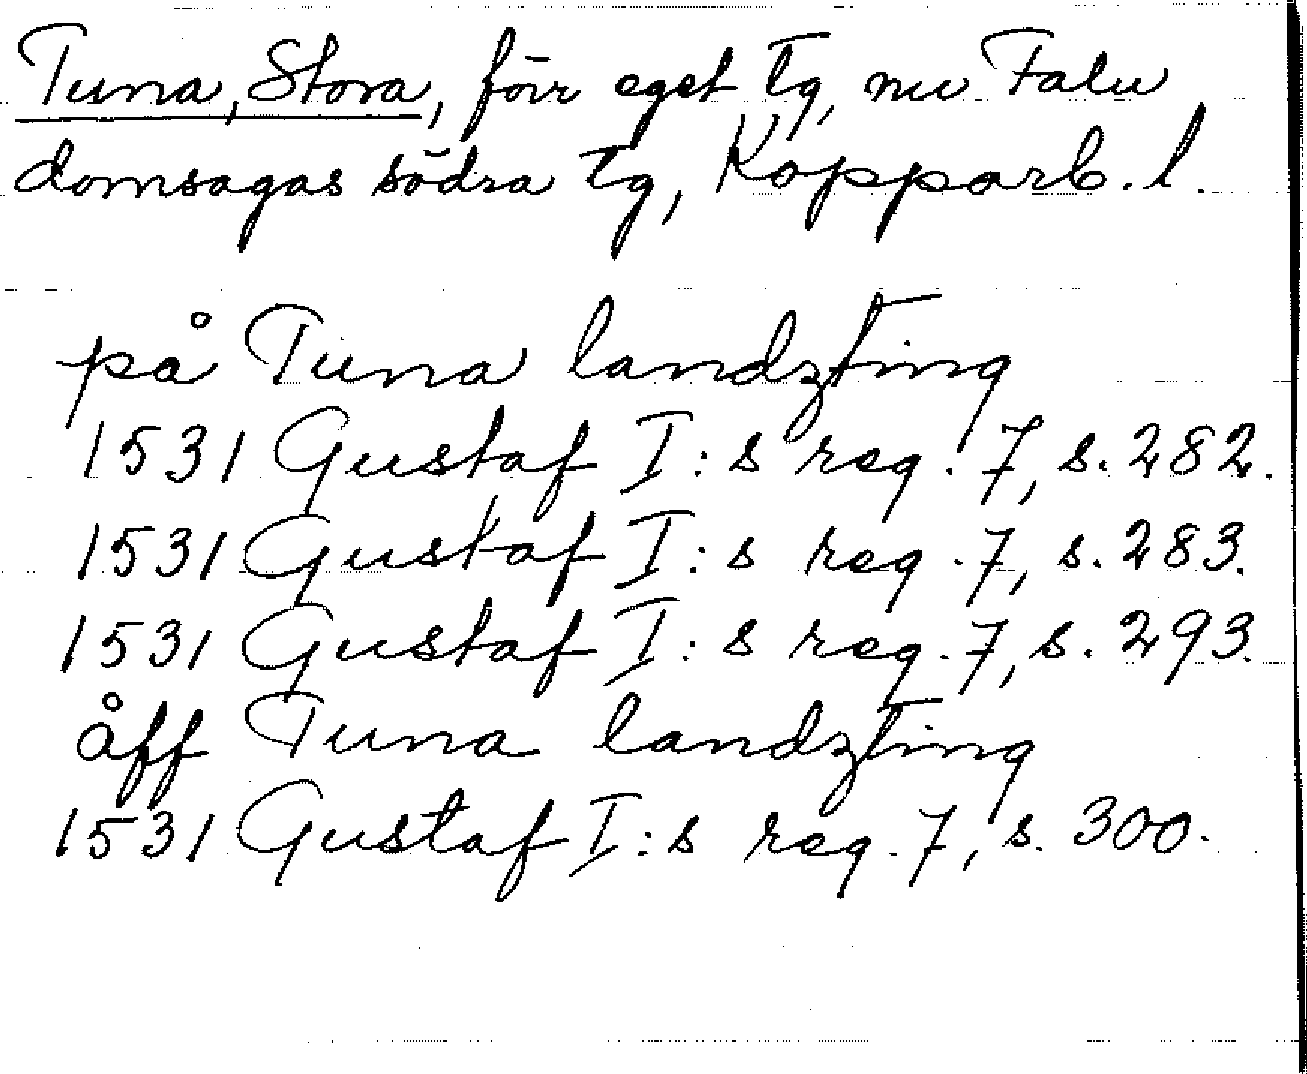 Tuna, Stora, förr eget tg, nu Falu
domsagas södra tg, Kopparb. l.
på Tuna landzting
1531 Gustaf I:s reg. 7, s. 282.
1531 Gustaf I:s reg. 7, s. 283.
1531 Gustaf I:s reg. 7, s. 293.
åff Tuna landzting
1531 Gustaf I:s reg. 7, s. 300.